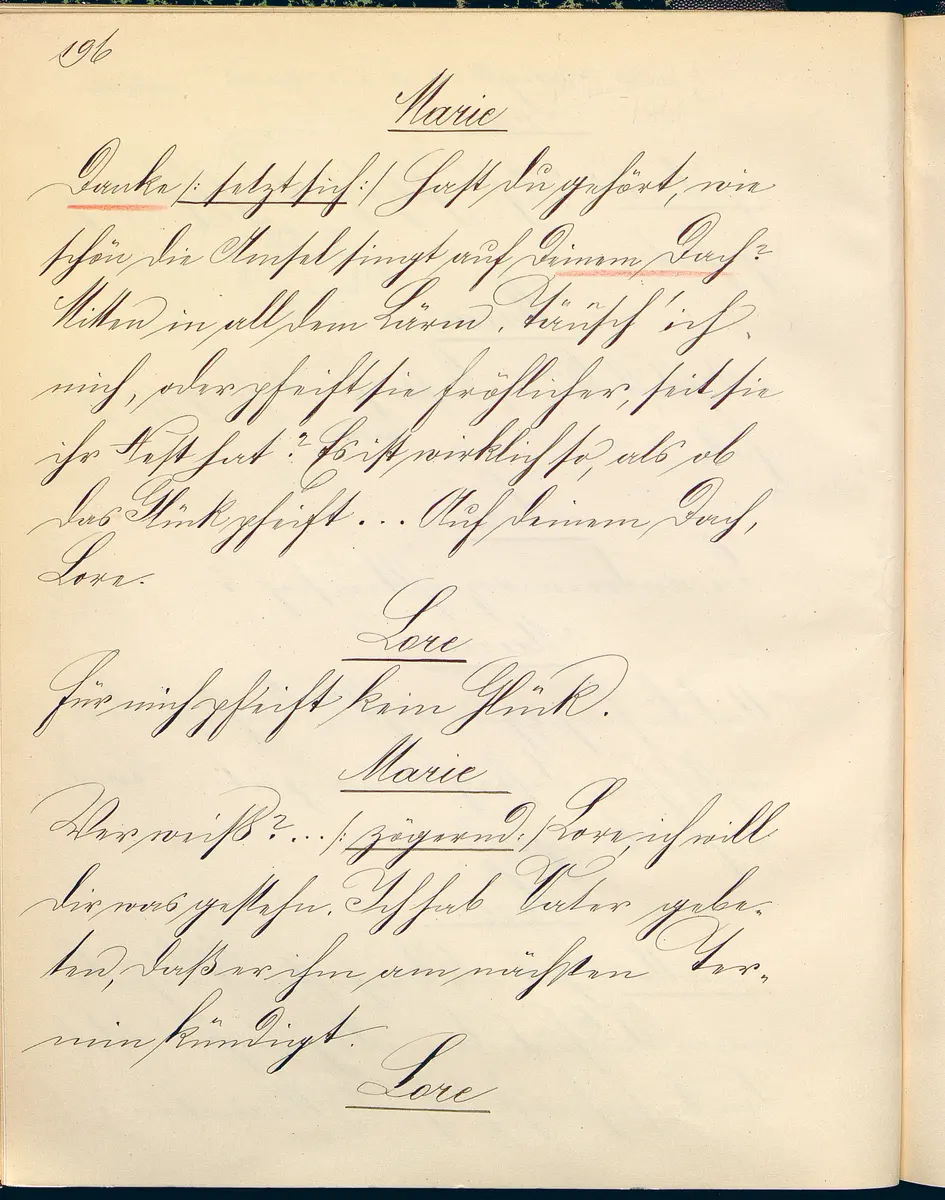 196
Marie
Danke /: setzt sich :/ Hast du gehört, wie
schön die Amsel singt auf Deinem Dach?
Mitten in all dem Lärm. Täusch' ich
mich, oder pfeift sie fröhlicher, seit sie
ihr Nest hat? Es ist wirklich so, als ob
das Glück pfeift... Auf deinem Dach,
Lore.
Lore
Für mich pfeift kein Glück.
Marie
Wer weiß?... /: zögernd :/ Lore, ich will
dir was gestehn. Ich hab Vater gebe-
ten, daß er ihm am nächsten Ter-
min kündigt.
Lore